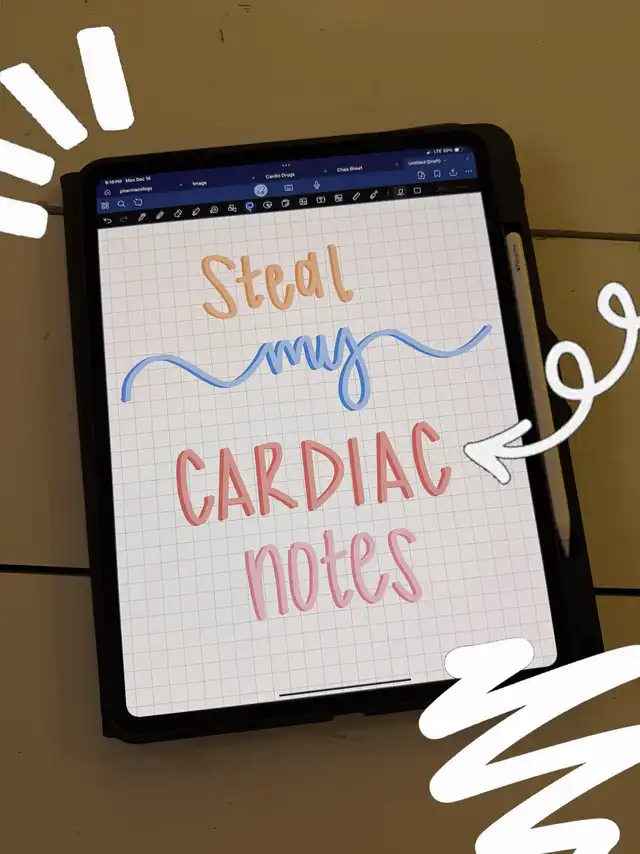 9:10 PM Mon Dec 16
LTE 56%
pharmacology
Image
Cardio Drugs
Chea Sheet
Untitled (Draft)
Steal
my
CARDIAC
notes